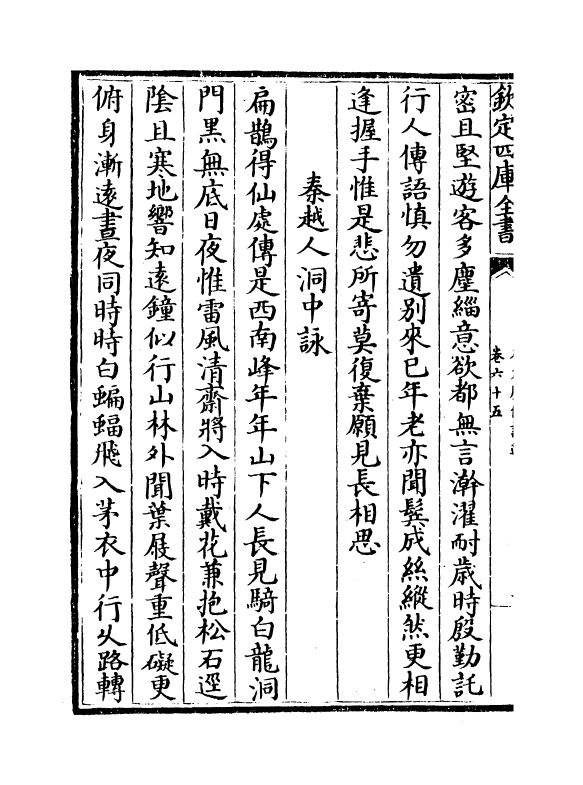 欽定四庫全書
卷六十五
密且堅遊客多塵緇意欲都無言澣濯耐歲時殷勤託
行人傳語慎勿遺别來已年老亦聞鬂成絲縱然更相
逢握手惟是悲所寄莫復棄願見長相思
秦越人洞中詠
扁鵲得仙處傳是西南峰年年山下人長見騎白龍洞
門黒無底日夜惟雷風清齋將入時戴花兼抱松石逕
陰且寒地響知遠鐘似行山林外聞葉屐聲重低礙更
俯身漸遠晝夜同時時白蝙蝠飛入茅衣中行久路轉